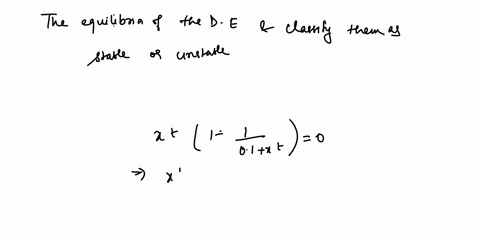 The equilibria of the D.E & classify them as
stable or unstable
x t ( 1 - 1/(0.1+x t) ) = 0
→ x'